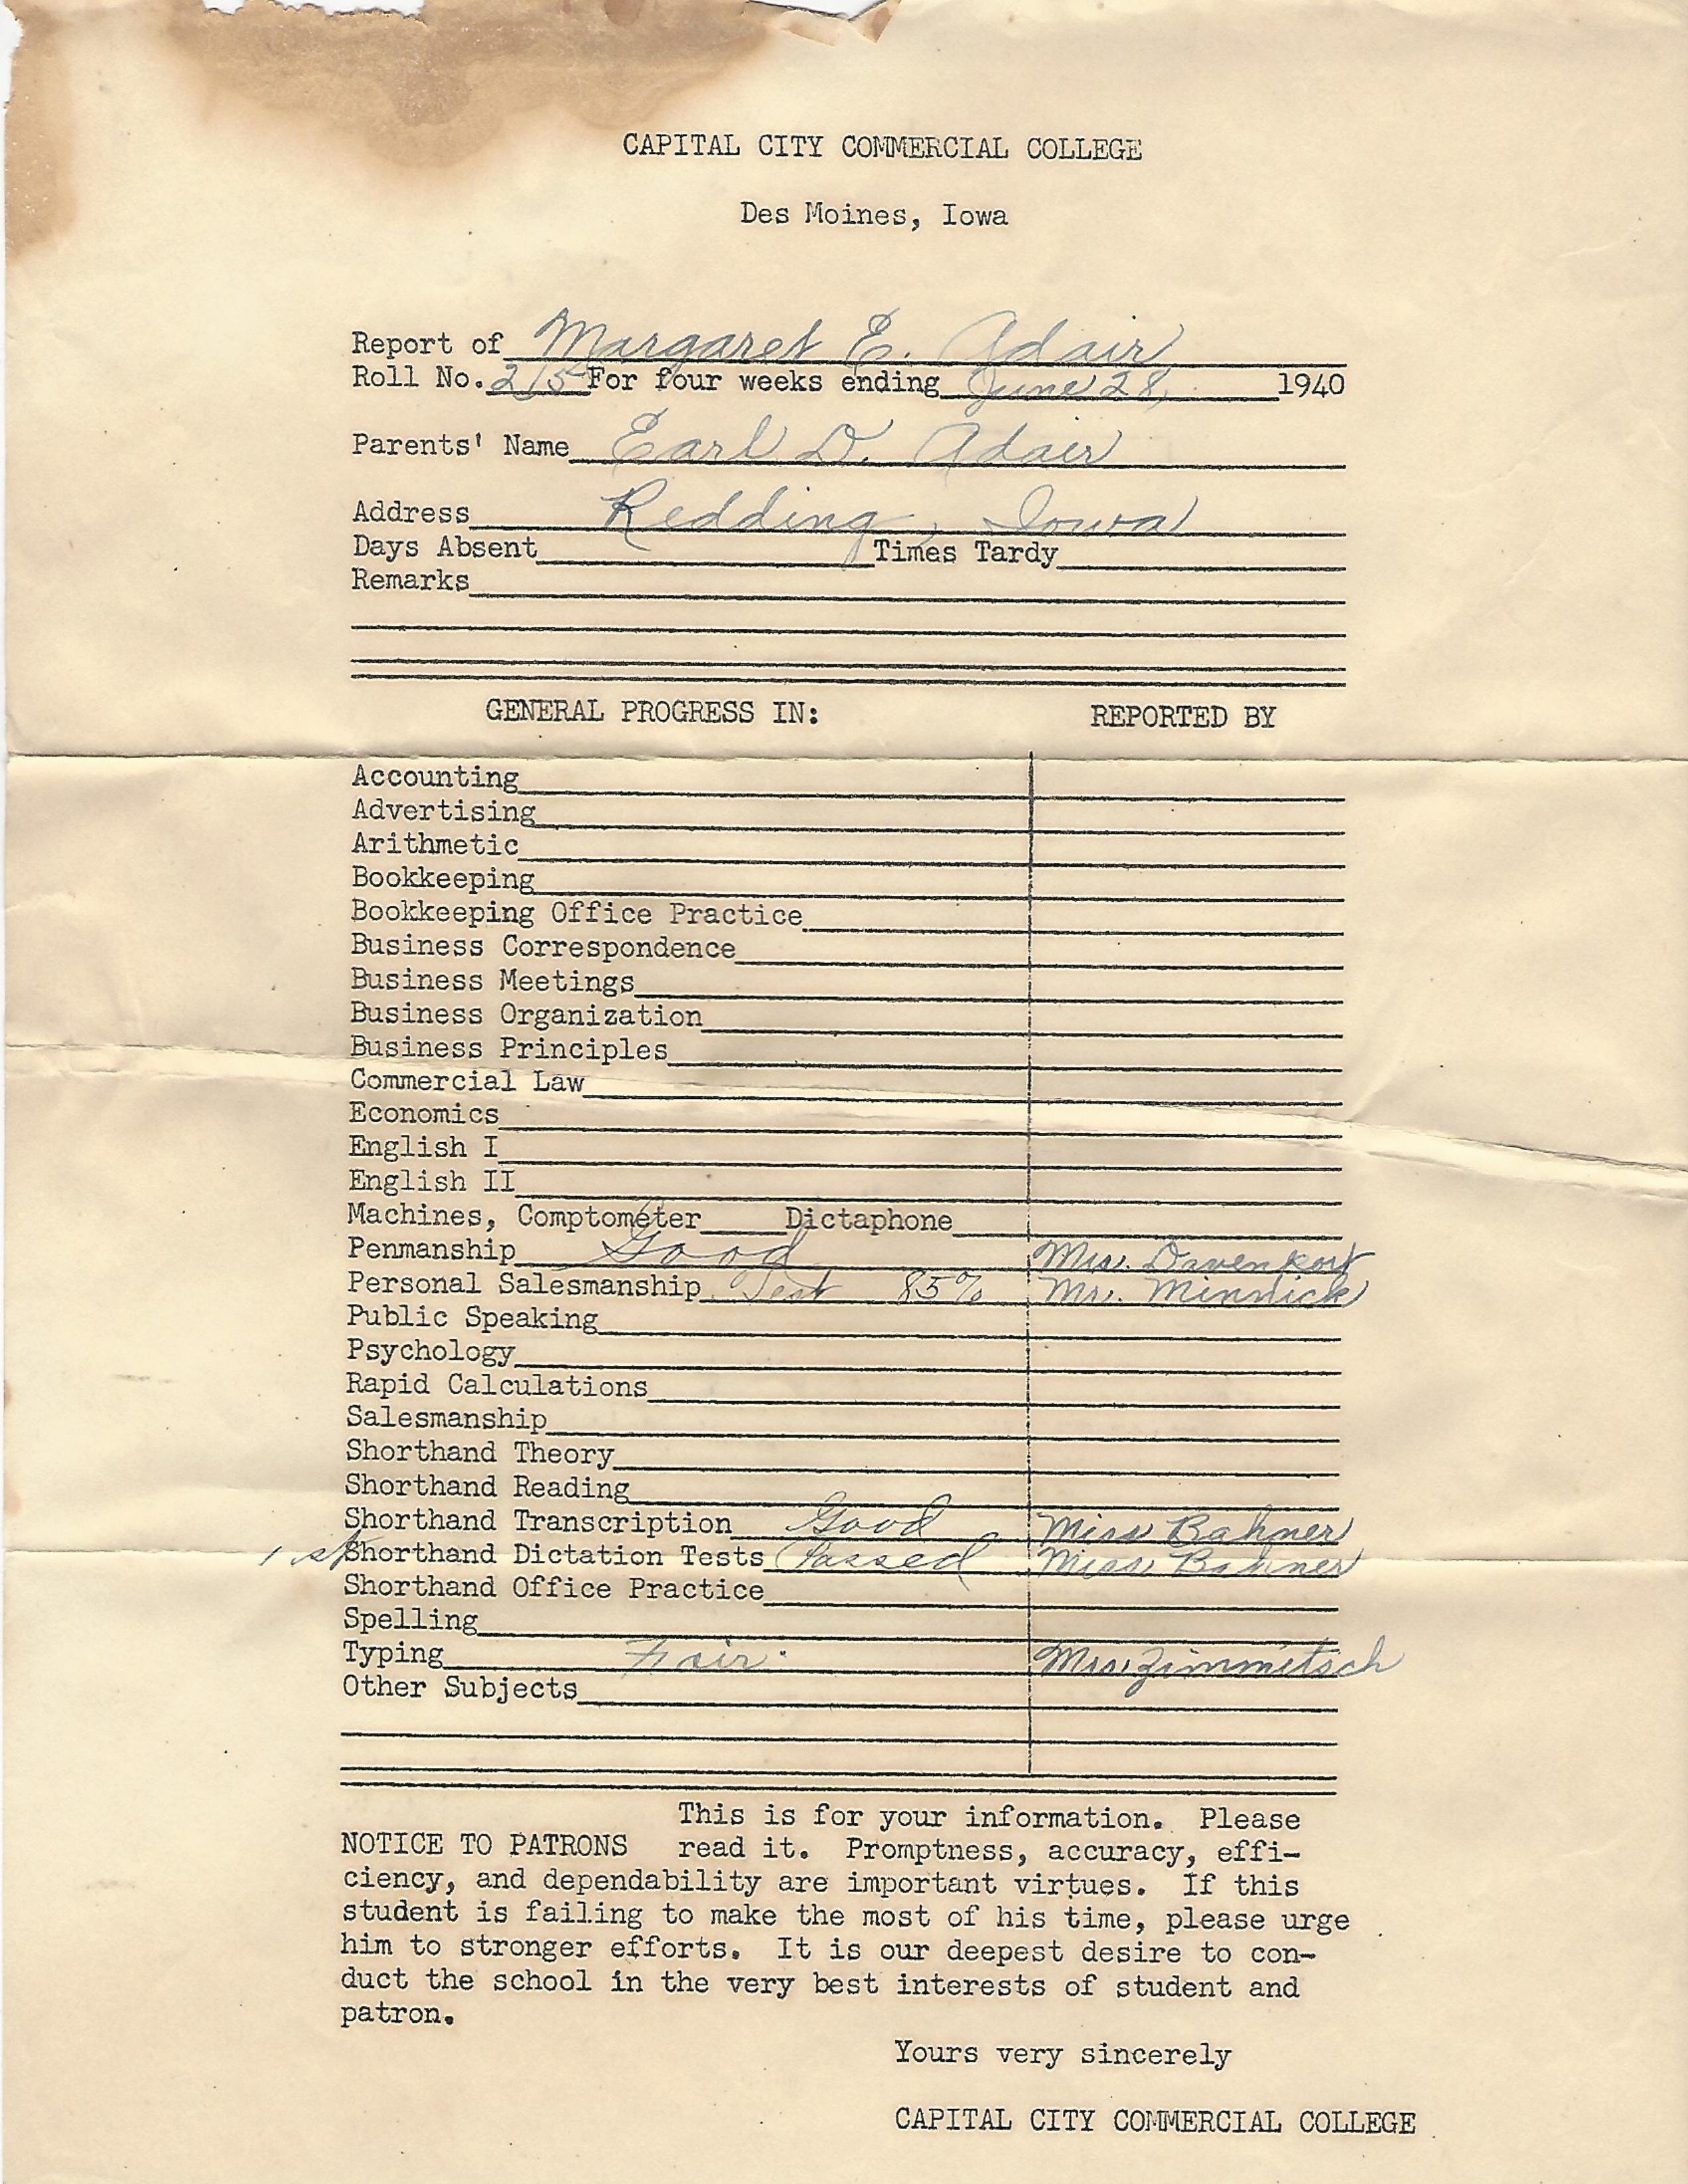 CAPITAL CITY COMMERCIAL COLLEGE
Des Moines, Iowa
Report of Margaret E. Adair
Roll No. 215 For four weeks ending June 28, 1940
Parents' Name Earl D. Adair
Address Redding, Iowa
Days Absent Times Tardy
Remarks
GENERAL PROGRESS IN: REPORTED BY
Accounting
Advertising
Arithmetic
Bookkeeping
Bookkeeping Office Practice
Business Correspondence
Business Meetings
Business Organization
Business Principles
Commercial Law
Economics
English I
English II
Machines, Comptometer Dictaphone
Penmanship Good Mrs. Davenport
Personal Salesmanship Test 85% Mr. Minnick
Public Speaking
Psychology
Rapid Calculations
Salesmanship
Shorthand Theory
Shorthand Reading
Shorthand Transcription Good Miss Bahner
1st Shorthand Dictation Tests Passed Miss Bahner
Shorthand Office Practice
Spelling
Typing Fair Mrs. Zimmitsch
Other Subjects
This is for your information. Please
NOTICE TO PATRONS read it. Promptness, accuracy, effi-
ciency, and dependability are important virtues. If this
student is failing to make the most of his time, please urge
him to stronger efforts. It is our deepest desire to con-
duct the school in the very best interests of student and
patron.
Yours very sincerely
CAPITAL CITY COMMERCIAL COLLEGE